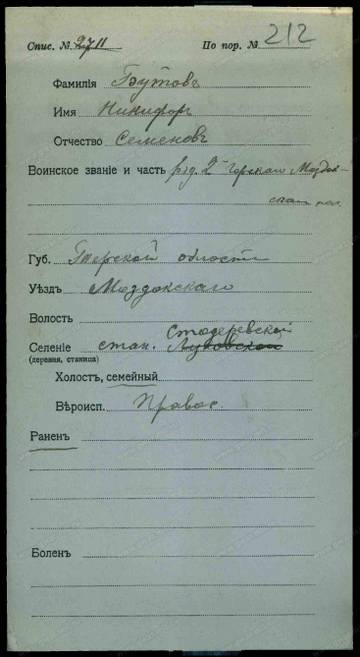 Спис. № 2711 По пор. № 212
Фамилія Бутовъ
Имя Никифор
Отчество Семеновъ
Воинское званіе и часть ряд. 2 Горскаго Моздок-
Губ. Терской области
Уѣздъ Моздокскаго
Волость
Стодеревской
Селеніе стан. Луковской
(деревня, станица)
Холостъ, семейный
Вѣроисп. Правос.
Раненъ
Боленъ